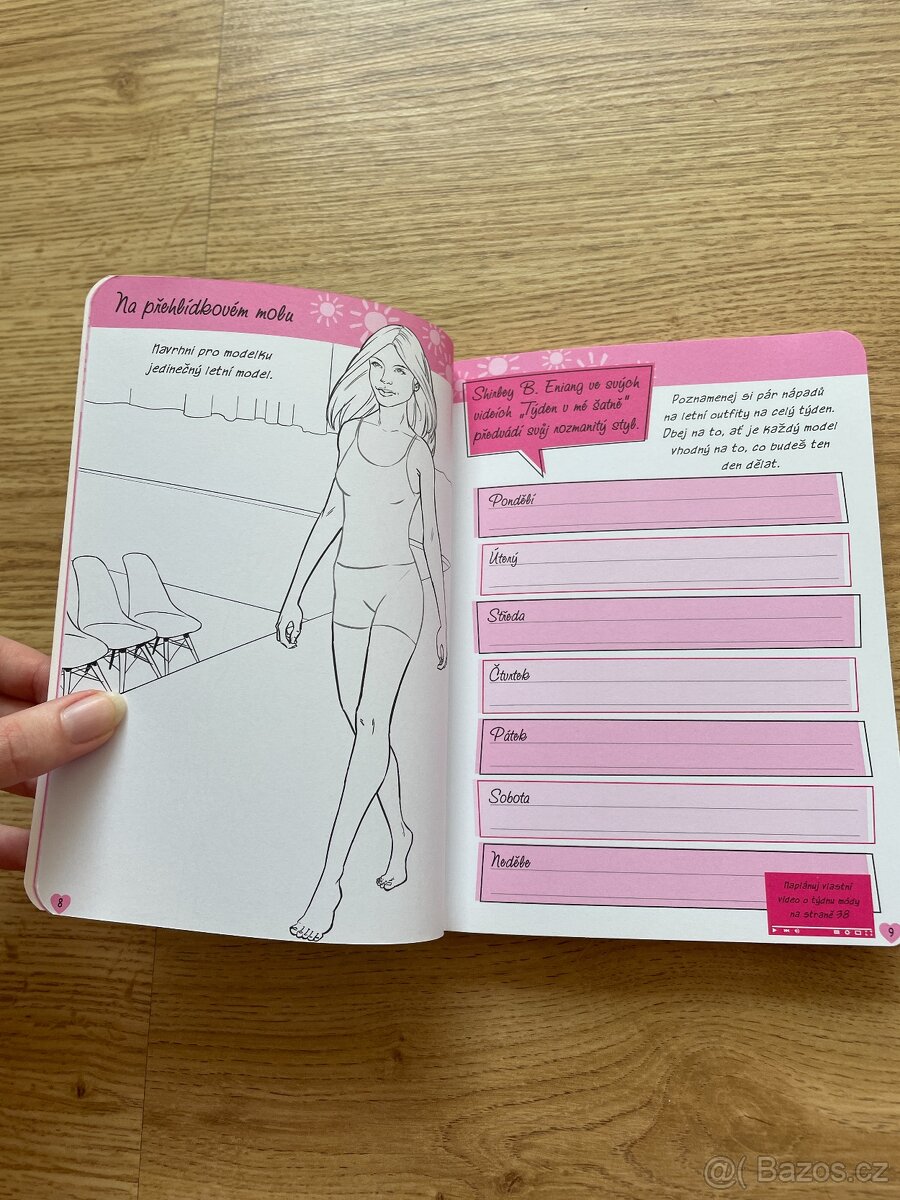 Na přehlídkovém molu
Navrhni pro modelku
jedinečný letní model.
8
Shirley B. Eniang ve svých
videích „Týden v mé šatně"
předvádí svůj rozmanitý styl.
Poznamenej si pár nápadů
na letní outfity na celý týden.
Dbej na to, ať je každý model
vhodný na to, co budeš ten
den dělat.
Pondělí
Úterý
Středa
Čtvrtek
Pátek
Sobota
Neděle
Naplánuj vlastní
video o týdnu módy
na straně 38
9
@( Bazos.cz